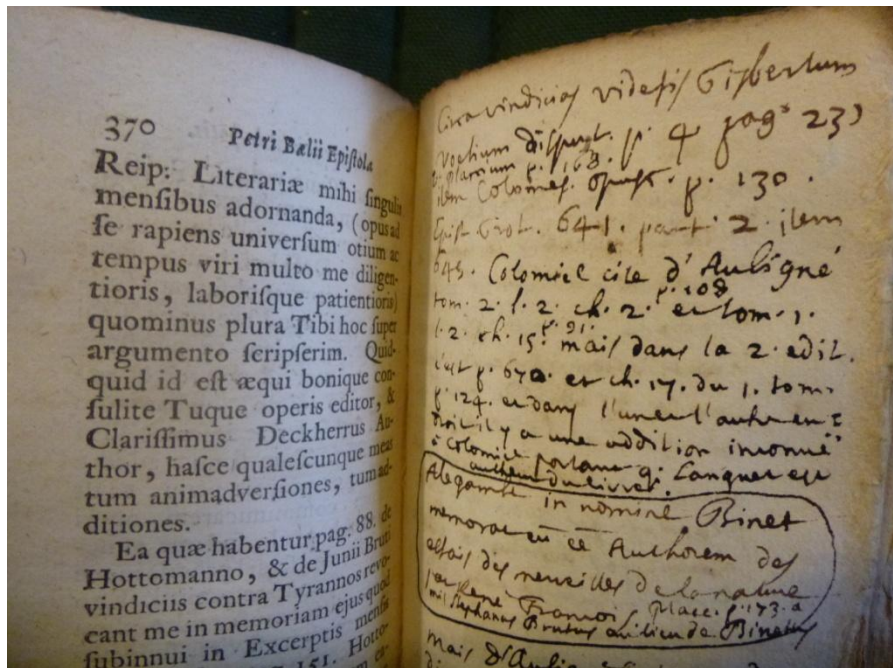 370 Petri Bælii Epistola
Reip. Literariæ mihi singulis
mensibus adornanda, (opus ad
se rapiens universum otium ac
tempus viri multo me diligen-
tioris, laborisque patientioris)
quominus plura Tibi hoc super
argumento scripserim. Quid-
quid id est æqui bonique con-
sulite Tuque operis editor, &
Clarissimus Deckherrus Au-
thor, hasce qualescunque meas
tum animadversiones, tum ad-
ditiones.
Ea quæ habentur pag. 88. de
Hottomanno, & de Junii Bruti
vindiciis contra Tyrannos revo-
cant me in memoriam ejus quod
subinnui in Excerptis mensis
151. Hotto-
Circa vindicias videsis Gisbertum
Voetium disput. p. 4 pag. 231
Placcium p. 168.
item Colomes. opusc. p. 130.
Epist. Grot. 641. part. 2. item
648. Colomiel cite d'Aubigné
p. 108
tom. 2. l. 2. ch. 2. et tom. 1.
p. 91.
l. 2. ch. 15. mais dans la 2. edit.
c'est p. 670. et ch. 17. du 1. tom.
p. 124. et dans l'un et l'autre en
il y a une addition inconnue
à Colomiel portant q. Languet est
autheur du livret.
Alegambe in nomine Binet
memorat eũ eẽ Authorem des
essais des merveilles de la nature
par René François Placc. p. 173. a
mis Stephanus Brutus au lieu de Binetus
mais d'Aubigné